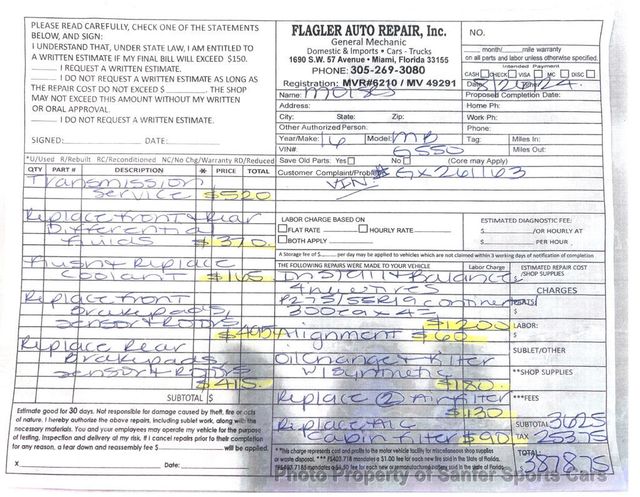 PLEASE READ CAREFULLY, CHECK ONE OF THE STATEMENTS
BELOW, AND SIGN:
I UNDERSTAND THAT, UNDER STATE LAW, I AM ENTITLED TO
A WRITTEN ESTIMATE IF MY FINAL BILL WILL EXCEED $150.
I REQUEST A WRITTEN ESTIMATE.
I DO NOT REQUEST A WRITTEN ESTIMATE AS LONG AS
THE REPAIR COST DO NOT EXCEED $ . THE SHOP
MAY NOT EXCEED THIS AMOUNT WITHOUT MY WRITTEN
OR ORAL APPROVAL.
I DO NOT REQUEST A WRITTEN ESTIMATE.
SIGNED: DATE:
FLAGLER AUTO REPAIR, Inc.
General Mechanic
Domestic & Imports • Cars - Trucks
1690 S.W. 57 Avenue • Miami, Florida 33155
PHONE: 305-269-3080
Registration: MVR#6210 / MV 49291
NO.
month/ mile warranty
on all parts and labor unless otherwise specified.
Intended Payment
CASH CHECK VISA MC DISC
Name:
Date: 8/26/24
Address:
Proposed Completion Date:
Home Ph:
City: State: Zip:
Work Ph:
Other Authorized Person:
Phone:
Year/Make: 16 Model: MB
Tag: Miles In:
VIN# G550
Miles Out:
*U/Used R/Rebuilt RC/Reconditioned NC/No Chg/Warranty RD/Reduced
Save Old Parts: Yes No (Core may Apply)
QTY PART # DESCRIPTION * PRICE TOTAL
Customer Complaint/Problem
VIN # GX261163
Transmission
Service $520
Replace front & Rear
Differential
fluids $370
Flush & Replace
Coolant $165
Replace front
Brake pads,
sensor & Rotors
$495
Replace Rear
Brake pads
sensor & Rotors
$415
SUBTOTAL $
LABOR CHARGE BASED ON
FLAT RATE HOURLY RATE
BOTH APPLY
ESTIMATED DIAGNOSTIC FEE:
$ /OR HOURLY AT
$ PER HOUR
A Storage fee of $ per day may be applied to vehicles which are not claimed within 3 working days of notification of completion.
THE FOLLOWING REPAIRS WERE MADE TO YOUR VEHICLE Labor Charge
Install & Balance
4 new tires
P275/55R19 Continental
300 ea x 4
$1200
Alignment $60
Oil Change & filter
w/synthetic
$180
Replace (2) Air filter
$130
Replace A/C
Cabin filter $90
ESTIMATED REPAIR COST
/SHOP SUPPLIES
CHARGES
PARTS:
$
LABOR:
$
SUBLET/OTHER
***SHOP SUPPLIES
***FEES
SUBTOTAL 3625
TAX 253.75
TOTAL:
3878.75
Estimate good for 30 days. Not responsible for damage caused by theft, fire or acts
of nature. I hereby authorize the above repairs, including sublet work, along with the
necessary materials. You and your employees may operate my vehicle for the purpose
of testing, inspection and delivery at my risk. If I cancel repairs prior to their completion
for any reason, a tear down and reassembly fee of $ will be applied.
X Date:
*This charge represents cost and profits to the motor vehicle facility for miscellaneous shop supplies
or waste disposal. ** FS403.718 mandates a $1.00 fee for each new tire sold in the State of Florida.
Photo Property of Santer Sports Cars